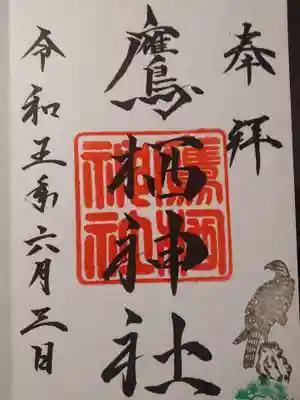 奉拝
鷹栖神社
鷹栖神社
令和五年六月三日